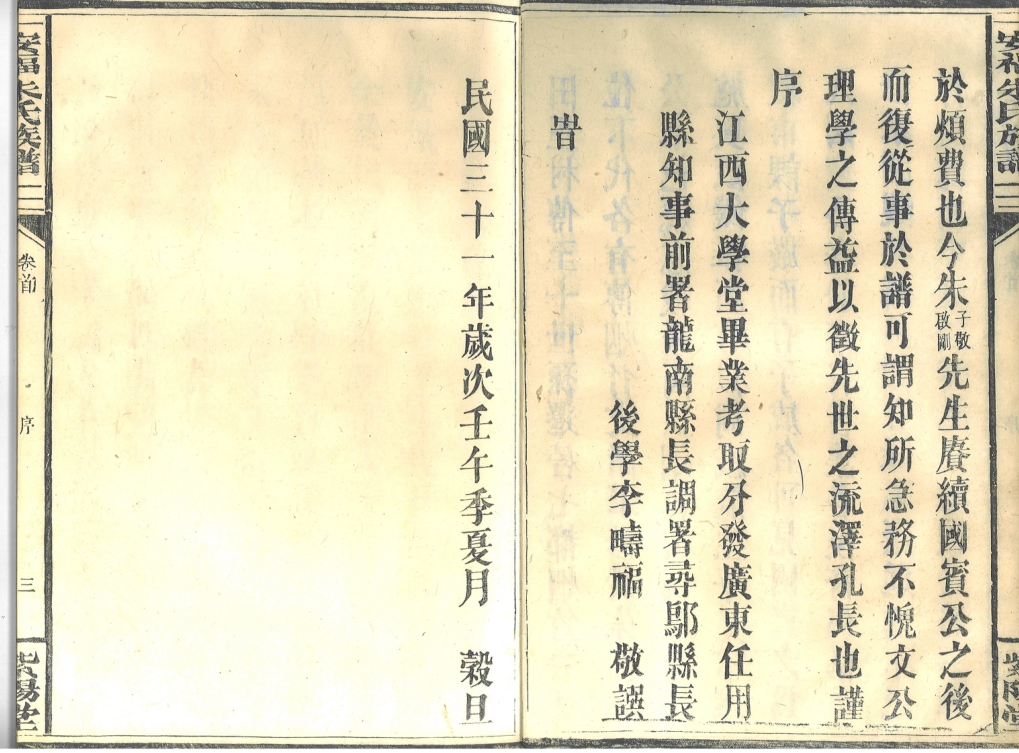 安福朱氏族譜
紫陽堂
於煩費也今朱子敬啟剛先生賡續國賓公之後
而復從事於譜可謂知所急務不愧文公
理學之傳益以徵先世之流澤孔長也謹
序
江西大學堂畢業考取分發廣東任用
縣知事前署龍南縣長調署尋鄔縣長
後學李疇福 敬譔
旹
民國三十一年歲次壬午季夏月 穀旦
安福朱氏族譜
卷首
序
三
紫陽堂